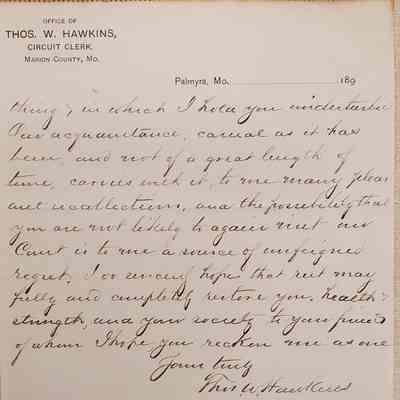 OFFICE OF
THOS. W. HAWKINS,
CIRCUIT CLERK,
MARION COUNTY, MO.
Palmyra, Mo. 189
thing, in which I hold you
Our acquaintance, casual as it has
been, and not of a great length of
time, carries with it, to me many pleas
ant recollections, and the possibility that
you are not likely to again visit our
Court is to me a source of unfeigned
regret. I do sincerely hope that rest may
fully and completely restore you, health &
strength, and your society to your friends
of whom I hope you reckon me as one
Yours truly
Thos. W. Hawkins